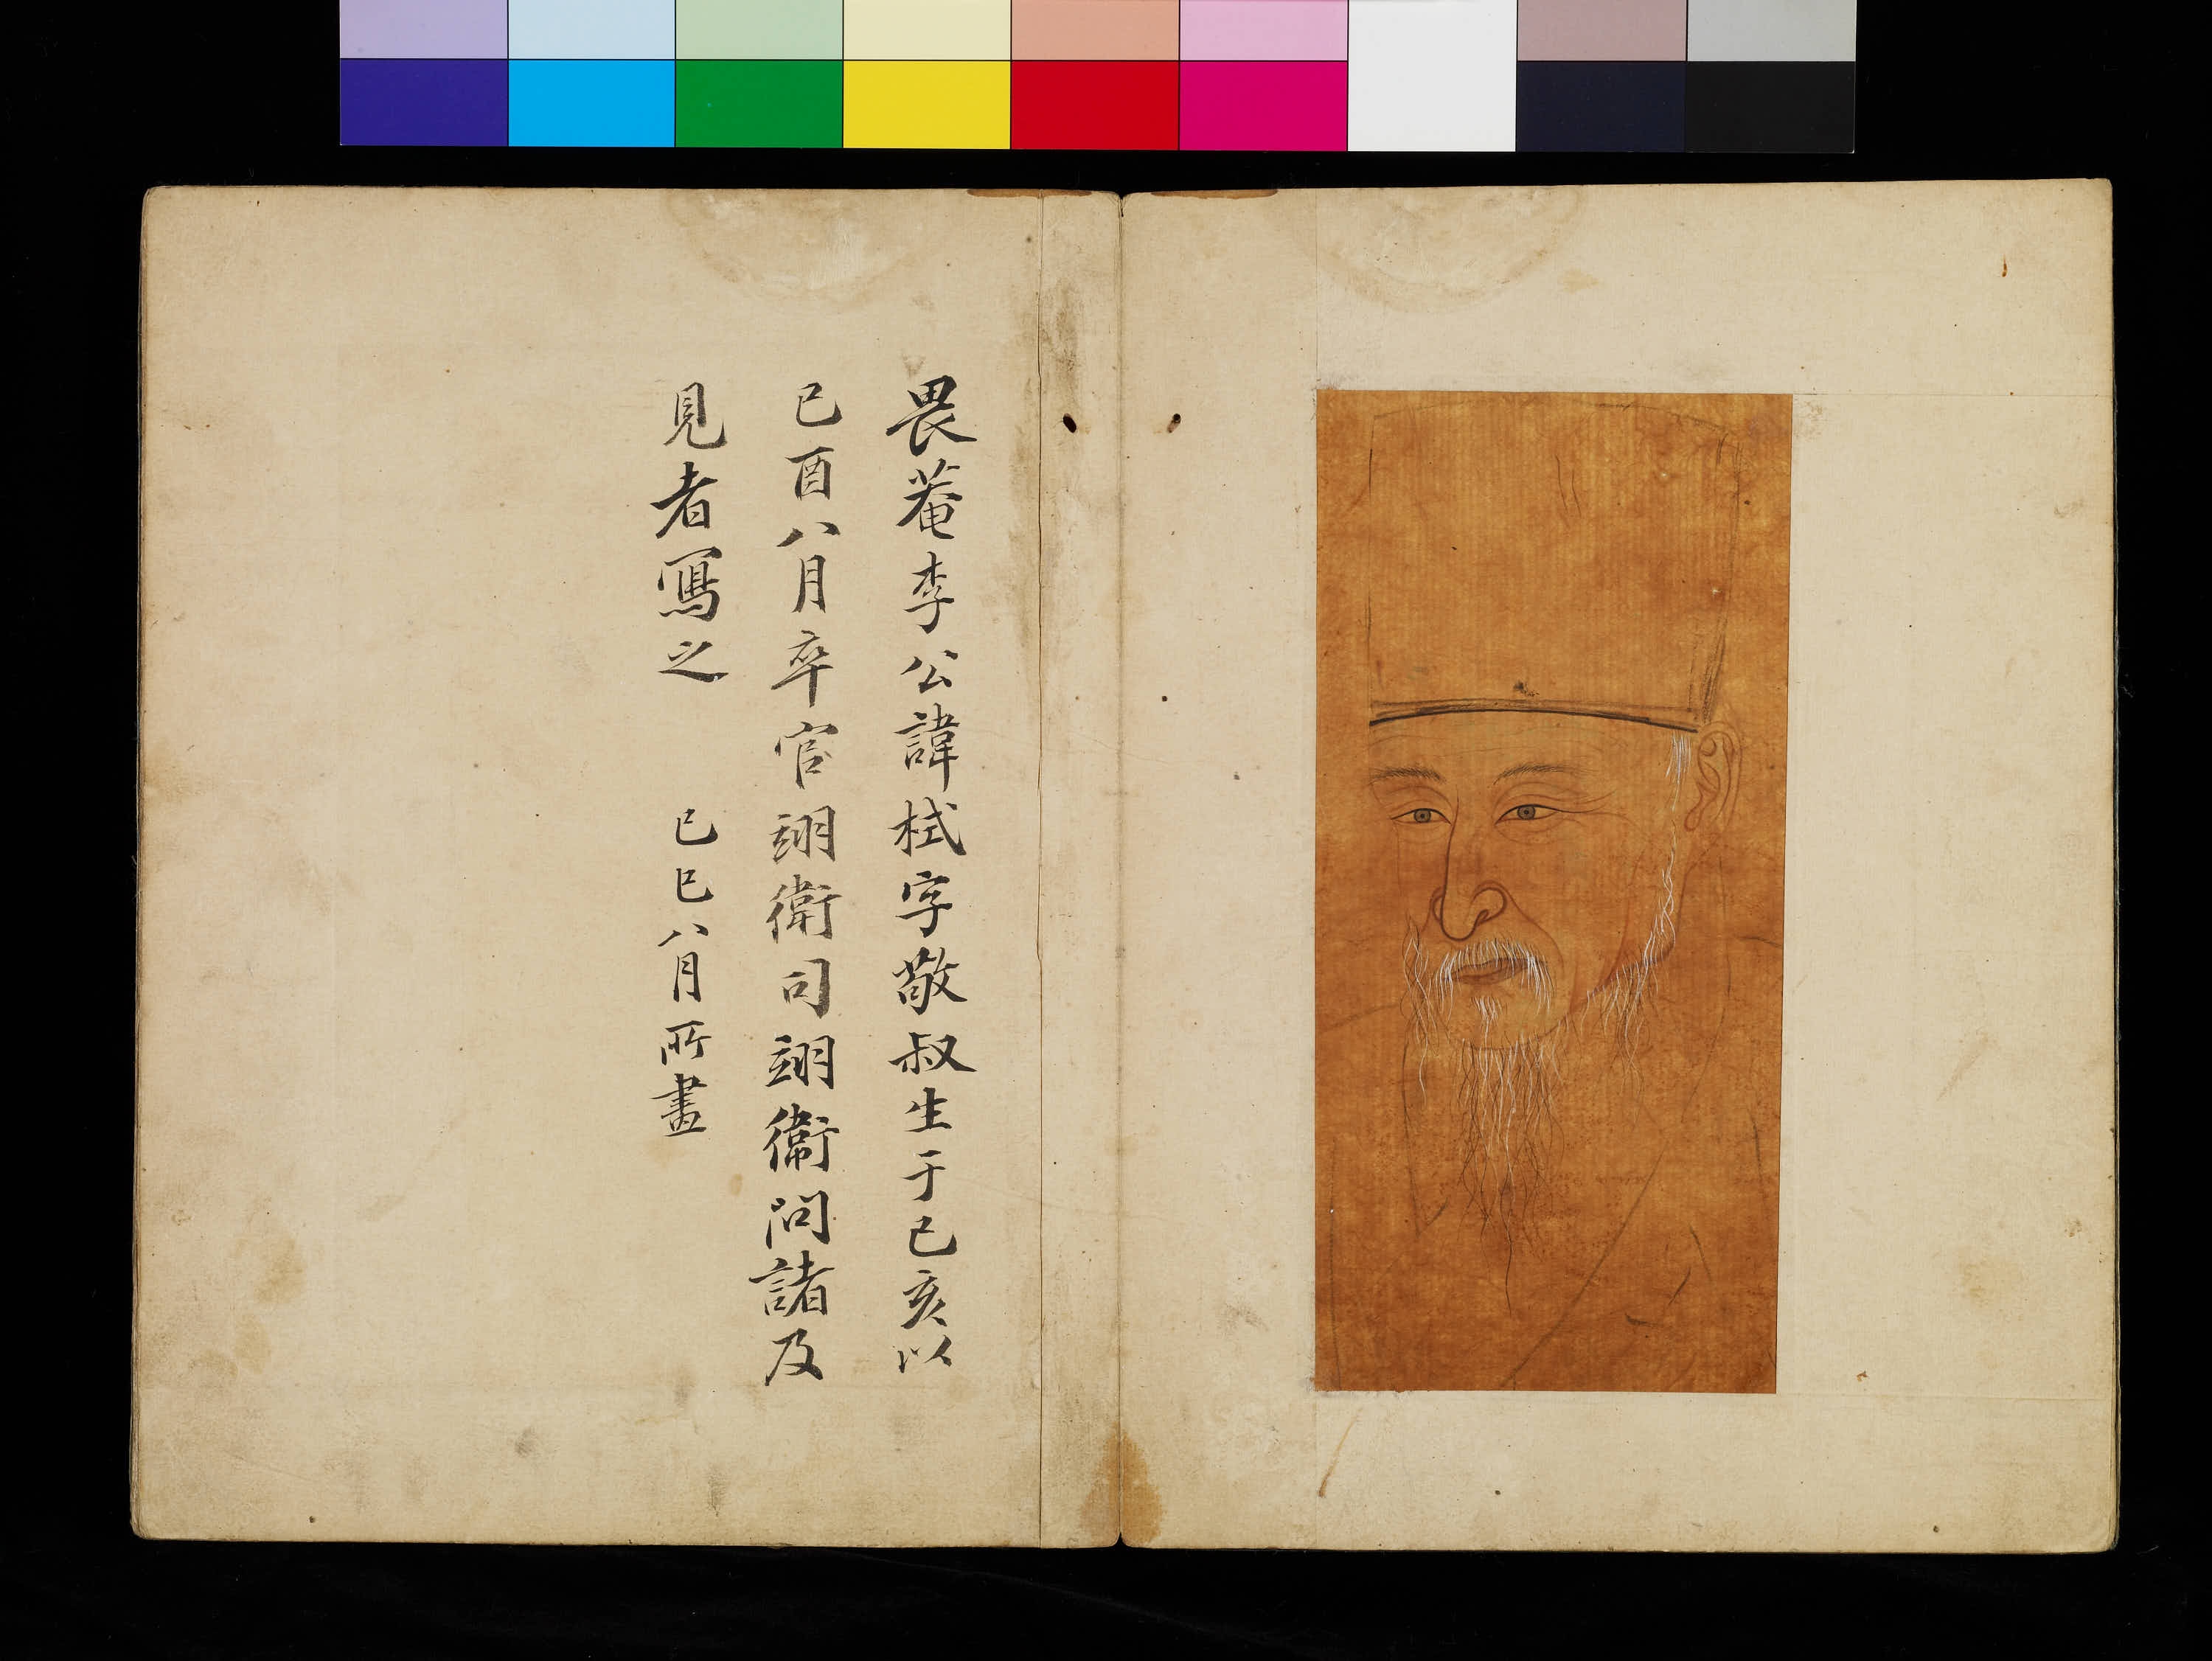 畏菴李公諱栻字敬叔生于己亥以
己酉八月卒官翊衛司翊衛問諸及
見者寫之　己巳八月所畫